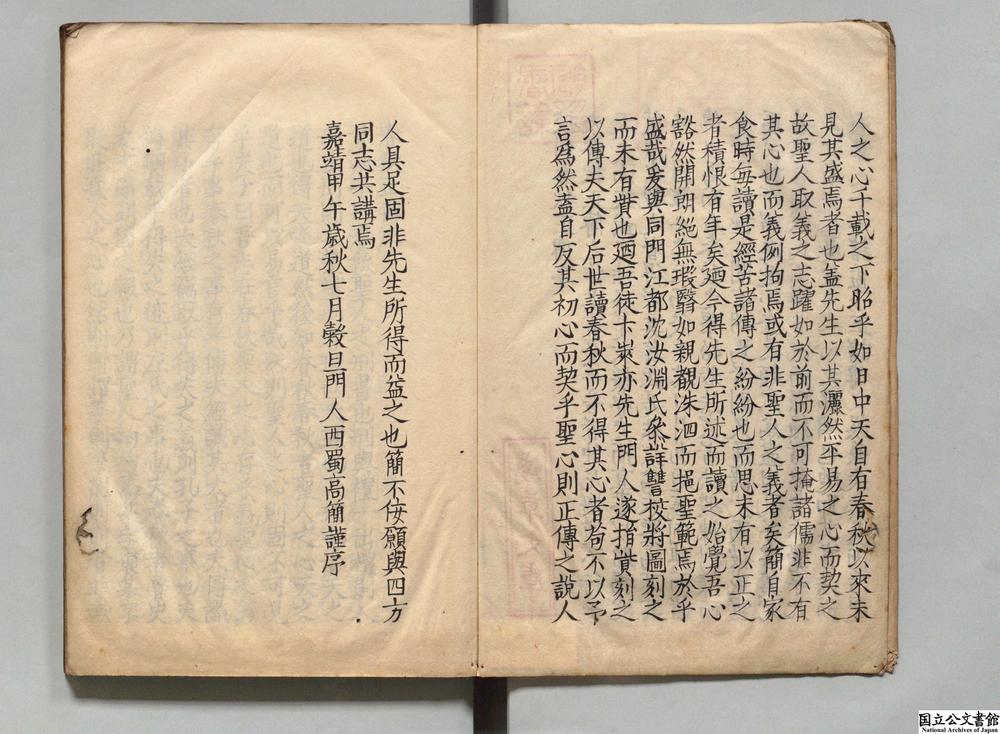 人之心千載之下昭乎如日中天自有春秋以來未
見其盛焉者也盖先生以其灑然平易之心而契之
故聖人取義之志躍如於前而不可掩諸儒非不有
其心也而義例拘焉或有非聖人之義者矣簡自家
食時每讀是經苦諸傳之紛紛也而思未有以正之
者積恨有年矣廼今得先生所述而讀之始覺吾心
豁然開朗絕無瑕翳如親觀洙泗而挹聖範焉於乎
盛哉爰與同門江都沈汝淵氏叅詳讐校將圖刻之
而未有貲也廼吾徒卞萊亦先生門人遂捐貲刻之
以傳夫天下后世讀春秋而不得其心者苟不以予
言為然盍自反其初心而契乎聖心則正傳之說人
人具足固非先生所得而益之也簡不佞願與四方
同志共講焉
嘉靖甲午歲秋七月穀旦門人西蜀高簡謹序
国立公文書館
National Archives of Japan